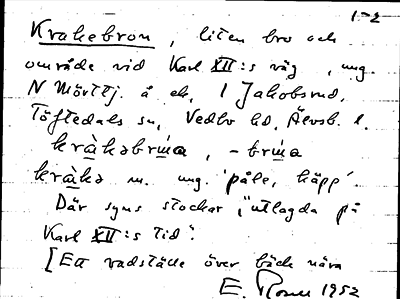 1-2
Krakebron, liten bro och
område vid Karl XII:s väg, ung.
N Mörttj. å ek. 1 Jakobsrud,
Töftedals sn, Vedbo hd, Älvsb. l.
kràkəbrùa, -brùa
kràkə m. ung. 'påle, käpp'.
Där syns stockar "utlagda på
Karl XII:s tid".
[Ett vadställe över bäck nära
E. 1952